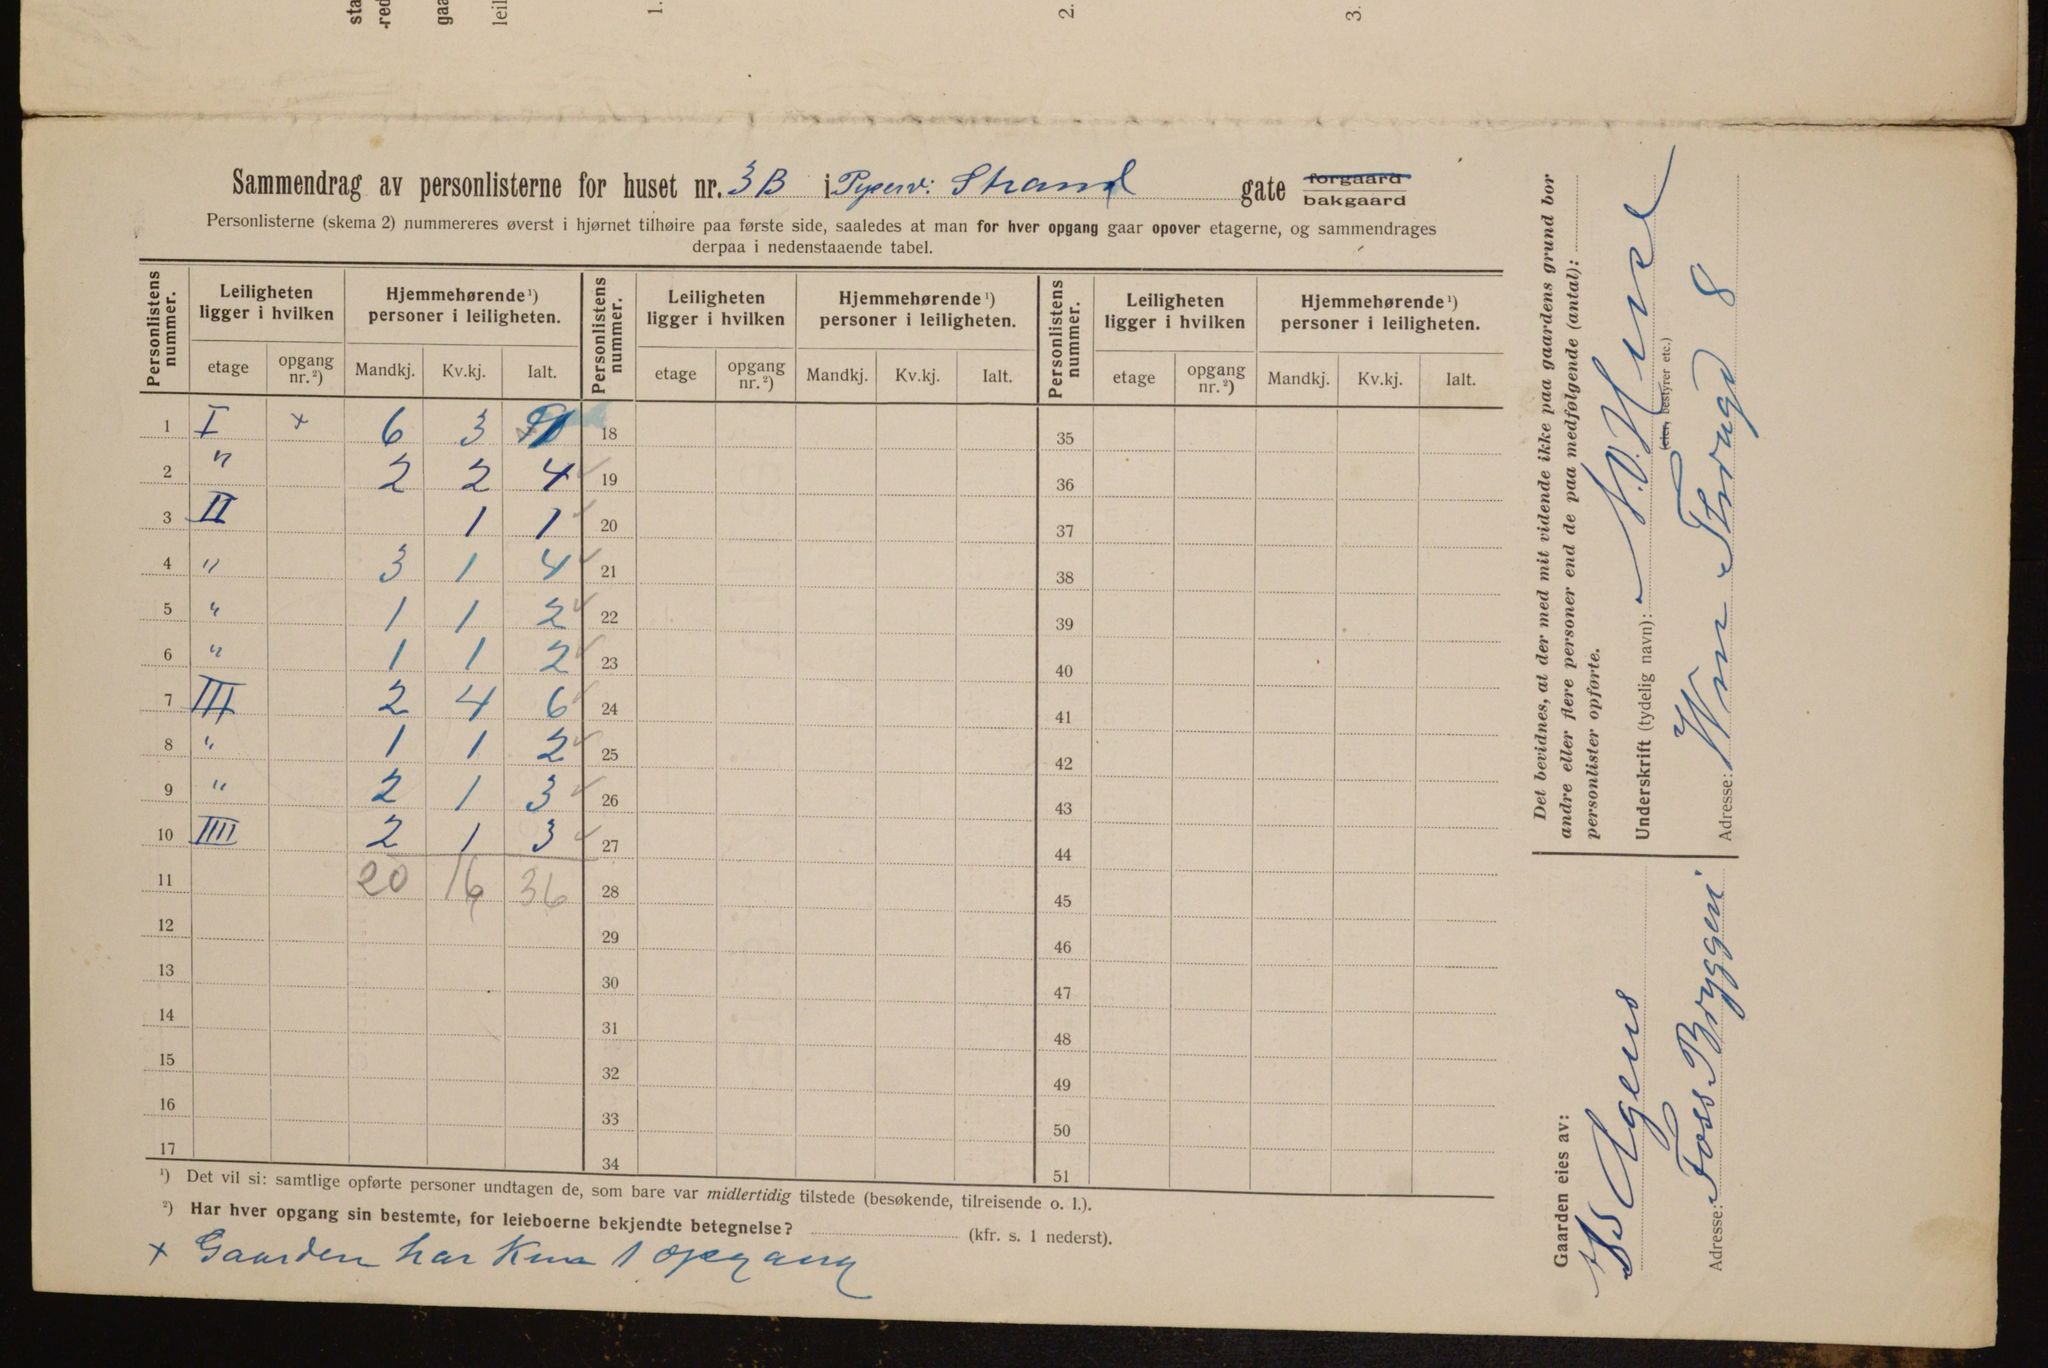 sta
red
gaa
leil
1.
2.
3.
Sammendrag av personlisterne for huset nr. 3B i Strand gate forgaard bakgaard
Personlisterne (skema 2) nummereres øverst i hjørnet tilhøire paa første side, saaledes at man for hver opgang gaar opover etagerne, og sammendrages
derpaa i nedenstaaende tabel.
Personlistens nummer. Leiligheten ligger i hvilken Hjemmehørende ¹) personer i leiligheten. Personlistens nummer. Leiligheten ligger i hvilken Hjemmehørende ¹) personer i leiligheten. Personlistens nummer. Leiligheten ligger i hvilken Hjemmehørende ¹) personer i leiligheten.
etage opgang nr.²) Mandkj. Kv.kj. Ialt. etage opgang nr.²) Mandkj. Kv.kj. Ialt. etage opgang nr.²) Mandkj. Kv.kj. Ialt.
1 I + 6 3 18 35
2 " 2 2 4 19 36
3 II 1 1 20 37
4 " 3 1 4 21 38
5 " 1 1 2 22 39
6 " 1 1 2 23 40
7 III 2 4 6 24 41
8 " 1 1 2 25 42
9 " 2 1 3 26 43
10 IIII 2 1 3 27 44
11 20 16 36 28 45
12 29 46
13 30 47
14 31 48
15 32 49
16 33 50
17 34 51
¹) Det vil si: samtlige opførte personer undtagen de, som bare var midlertidig tilstede (besøkende, tilreisende o. l.).
²) Har hver opgang sin bestemte, for leieboerne bekjendte betegnelse? (kfr. s. 1 nederst).
+ Gaarden har kun 1 opgang
Det bevidnes, at der med mit vidende ikke paa gaardens grund bor
andre eller flere personer end de paa medfølgende (antal):
personlister opførte.
Underskrift (tydelig navn):
(eier, bestyrer etc.)
Adresse: 8
Gaarden eies av:
Agers
Adresse: Foss Bryggeri